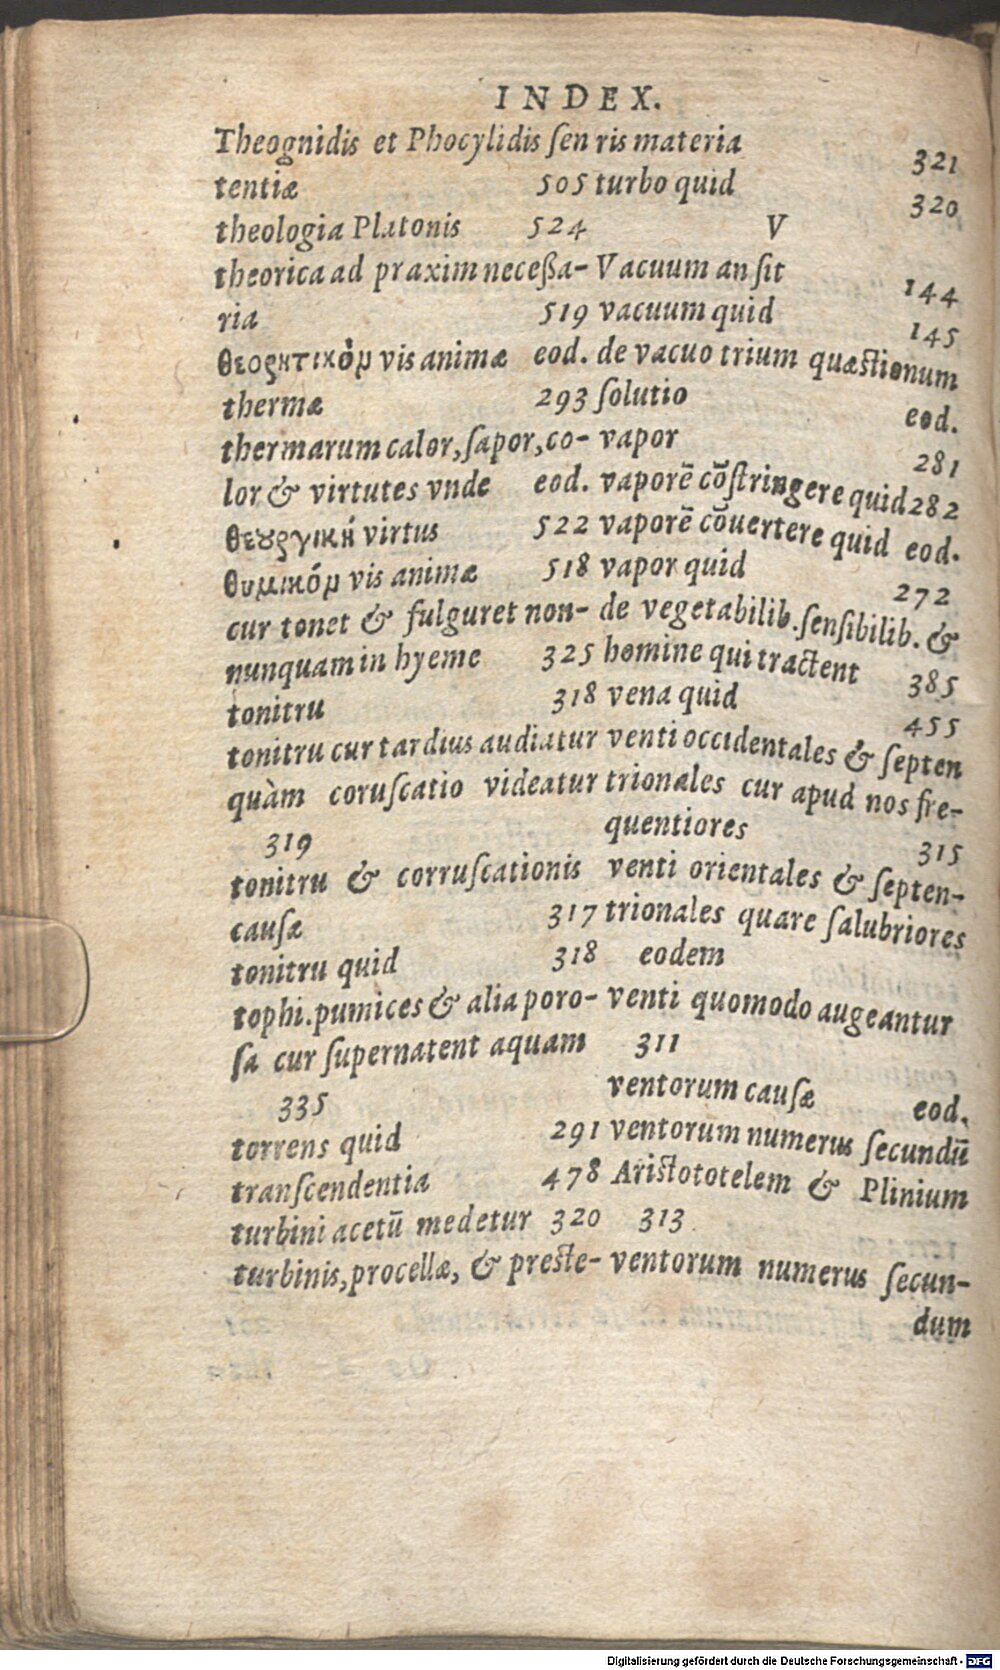 INDEX.
Theognidis et Phocylidis ſen
tentiæ 505
theologia Platonis 524
theorica ad praxim neceßa-
ria 519
θεορητικὸν vis animæ eod.
thermæ 293
thermarum calor, ſapor, co-
lor & virtutes vnde eod.
θεουργικὴ virtus 522
θυμικόν vis animæ 518
cur tonet & fulguret non-
nunquam in hyeme 325
tonitru 318
tonitru cur tardius audiatur
quàm coruſcatio videatur
319
tonitru & corruſcationis
cauſæ 317
tonitru quid 318
tophi.pumices & alia poro-
ſa cur ſupernatent aquam
335
torrens quid 291
tranſcendentia 478
turbini acetū medetur 320
turbinis, procellæ, & preſte-
ris materia 321
turbo quid 320
V
Vacuum an ſit 144
vacuum quid 145
de vacuo trium quæſtionum
ſolutio eod.
vapor 281
vaporē cōſtringere quid 282
vaporē cōuertere quid eod.
vapor quid 272
de vegetabilib.ſenſibilib. &
homine qui tractent 385
vena quid 455
venti occidentales & ſepten
trionales cur apud nos fre-
quentiores 315
venti orientales & ſepten-
trionales quare ſalubriores
eodem
venti quomodo augeantur
311
ventorum cauſæ eod.
ventorum numerus ſecundū
Ariſtototelem & Plinium
313
ventorum numerus ſecun-
dum
Digitalisierung gefördert durch die Deutsche Forschungsgemeinschaft - DFG